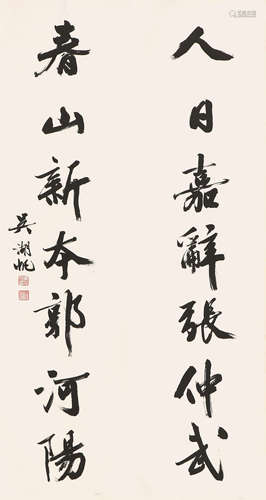 人日嘉辭張仲武
春山新本郭河陽
吳湖帆